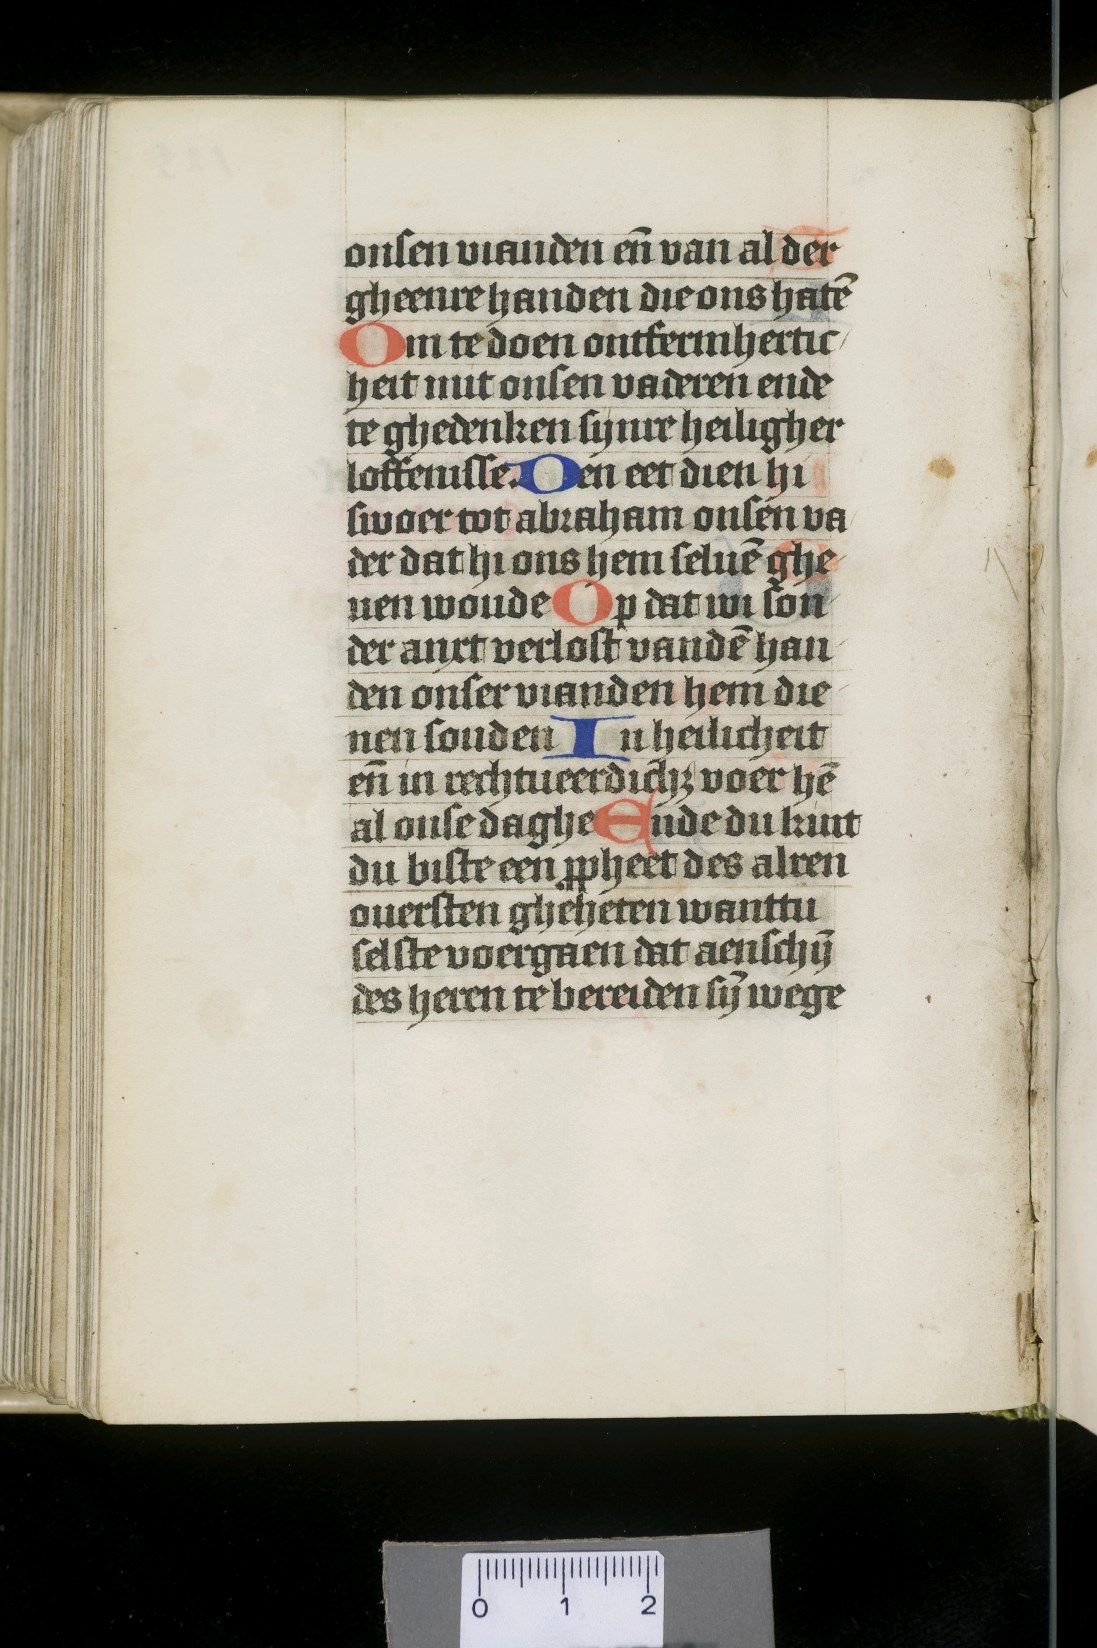 onsen vianden eñ van al der
gheenre handen die ons hatē
Om te doen ontfermhertic
heit mit onsen vaderen ende
te ghedenken synre heiligher
loffenisse. Den eet dien hi
swoer tot abraham onsen va
der dat hi ons hem seluē ghe
uen woude Op dat wi son
der anxt verlost vandē han
den onser vianden hem die
nen souden In heilicheit
eñ in rechtueerdich̄ʒ voer hē
al onse daghe Ende du kint
du biste een ꝓpheet des alren
ouersten gheheten wanttu
selste voergaen dat aenschȳ
des heren te bereiden sȳ wege
0 1 2